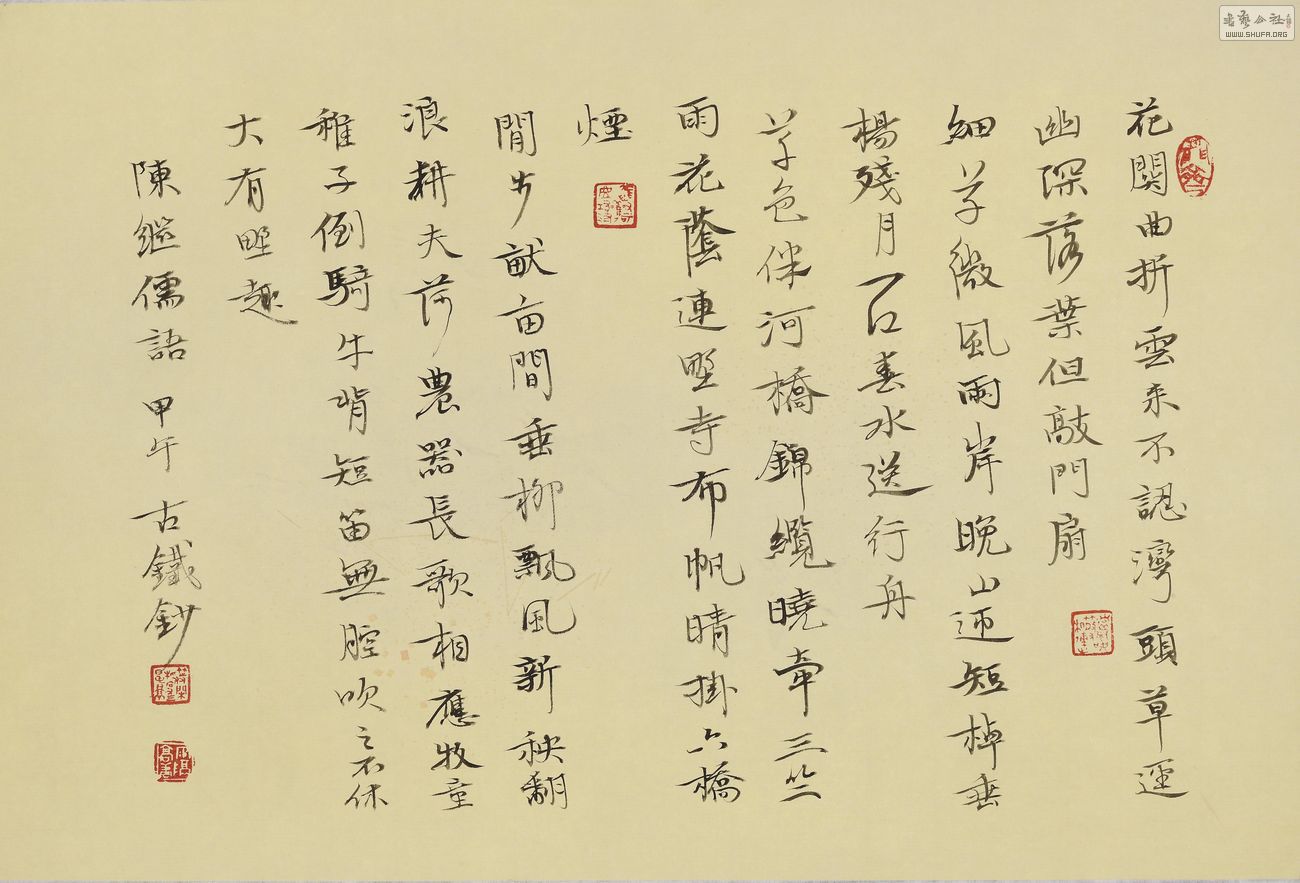 花関曲折雲来不認灣頭草逕
幽深落葉但敲門扇
細草微風兩岸晚山迎短棹垂
楊殘月一江春水送行舟
草色伴河橋錦纜曉牽三竺
雨花蔭連野寺布帆晴掛六橋
煙
閒步畎亩間垂柳飄風新秧翻
浪耕夫荷農器長歌相應牧童
稚子倒騎牛背短笛無腔吹之不休
大有野趣
陳繼儒語 甲午 古鐵鈔
WWW.SHUFA.ORG